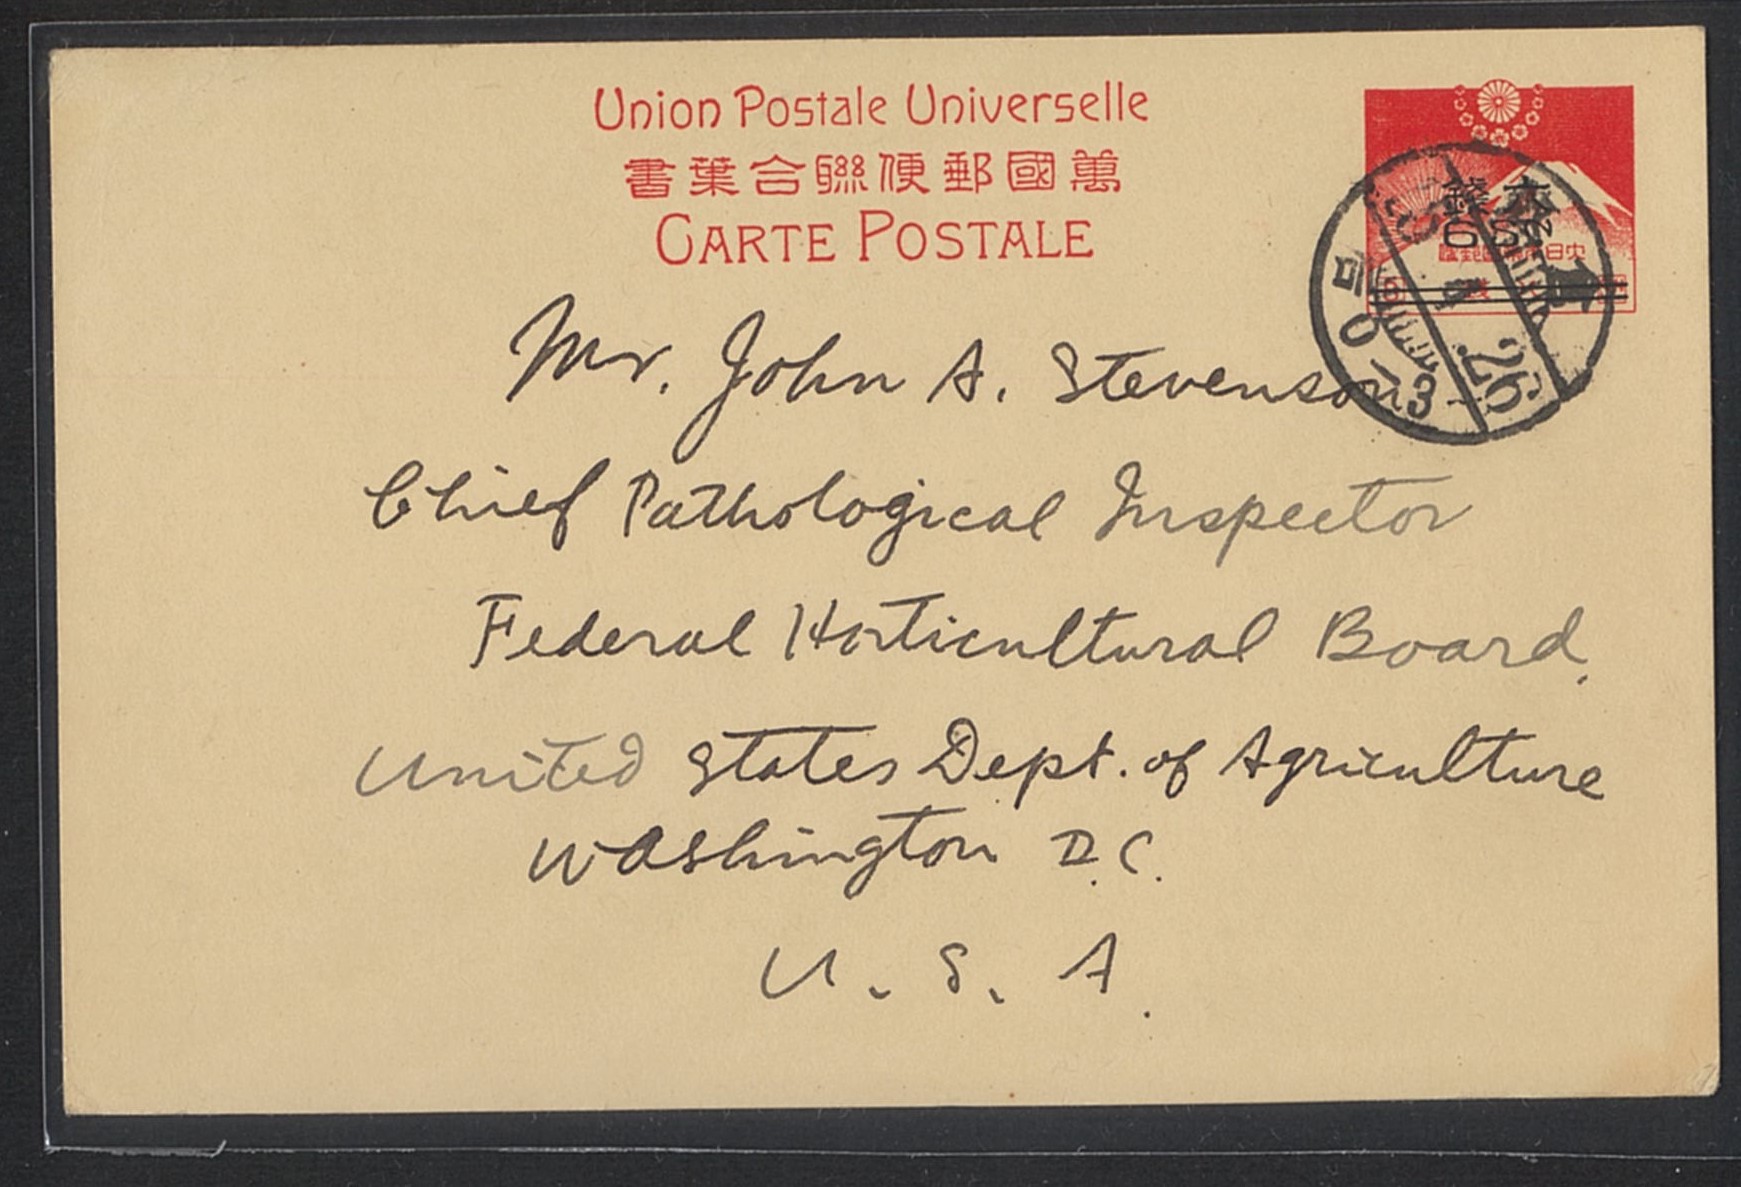 Union Postale Universelle
萬國郵便聯合葉書
CARTE POSTALE
六錢
6
26
0-3
Mr. John A. Stevenson
Chief Pathological Inspector
Federal Horticultural Board,
United States Dept. of Agriculture
Washington D.C.
U. S. A.